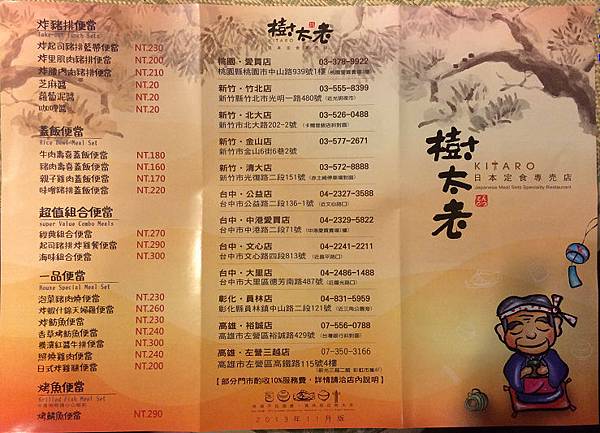 炸豬排便當
炸起司豬排藍帶便當 NT.230
炸里肌肉豬排便當 NT.200
炸腰內肉豬排便當 NT.210
芝麻醬 NT.20
蘿蔔泥醬 NT.20
咖哩醬 NT.20
蓋飯便當
Rice Bowl Meal Set
牛肉壽喜蓋飯便當 NT.180
豬肉壽喜蓋飯便當 NT.160
親子雞肉蓋飯便當 NT.170
味噌豬排蓋飯便當 NT.220
超值組合便當
super Value Combo Meals
經典組合便當 NT.270
起司豬排炸雞餐便當 NT.290
海味組合便當 NT.300
一品便當
House Special Meal Set
泡菜豬肉燒便當 NT.230
炸蝦什錦天婦羅便當 NT.260
炸魴魚便當 NT.230
香草烤魴魚便當 NT.240
NT.240
照燒雞肉便當 NT.240
日式炸雞腿便當 NT.230
烤魚便當
Grilled Fish Meal Set
烤鯖魚便當 NT.290
樹太老
KITARO
日本定食專賣店
桃園・愛買店 03-378-9922
桃園縣桃園市中山路939號1樓
新竹・竹北店 03-555-8399
新竹縣竹北市光明一路480號
新竹・北大店 03-526-0488
新竹市北大路202-2號
新竹・金山店 03-577-2671
新竹市金山6街6巷2號
新竹・清大店 03-572-8888
新竹市光復路二段151號
台中・公益店 04-2327-3588
台中市公益路二段136-1號
台中・中港愛買店 04-2329-5822
台中市中港路二段71號
台中・文心店 04-2241-2211
台中市文心路四段813號
台中・大里店 04-2486-1488
台中市大里區德芳南路487號
彰化・員林店 04-831-5959
彰化縣員林鎮中山路二段121號
高雄・裕誠店 07-556-0788
高雄市左營區裕誠路429號
高雄・左營三越店 07-350-3166
高雄市左營區高鐵路115號4樓
【部分門市酌收10%服務費，詳情請洽店內說明】
2013年11月版
樹太老
KITARO
日本定食専売店
Japanese Meal Sets Specialty Restaurant